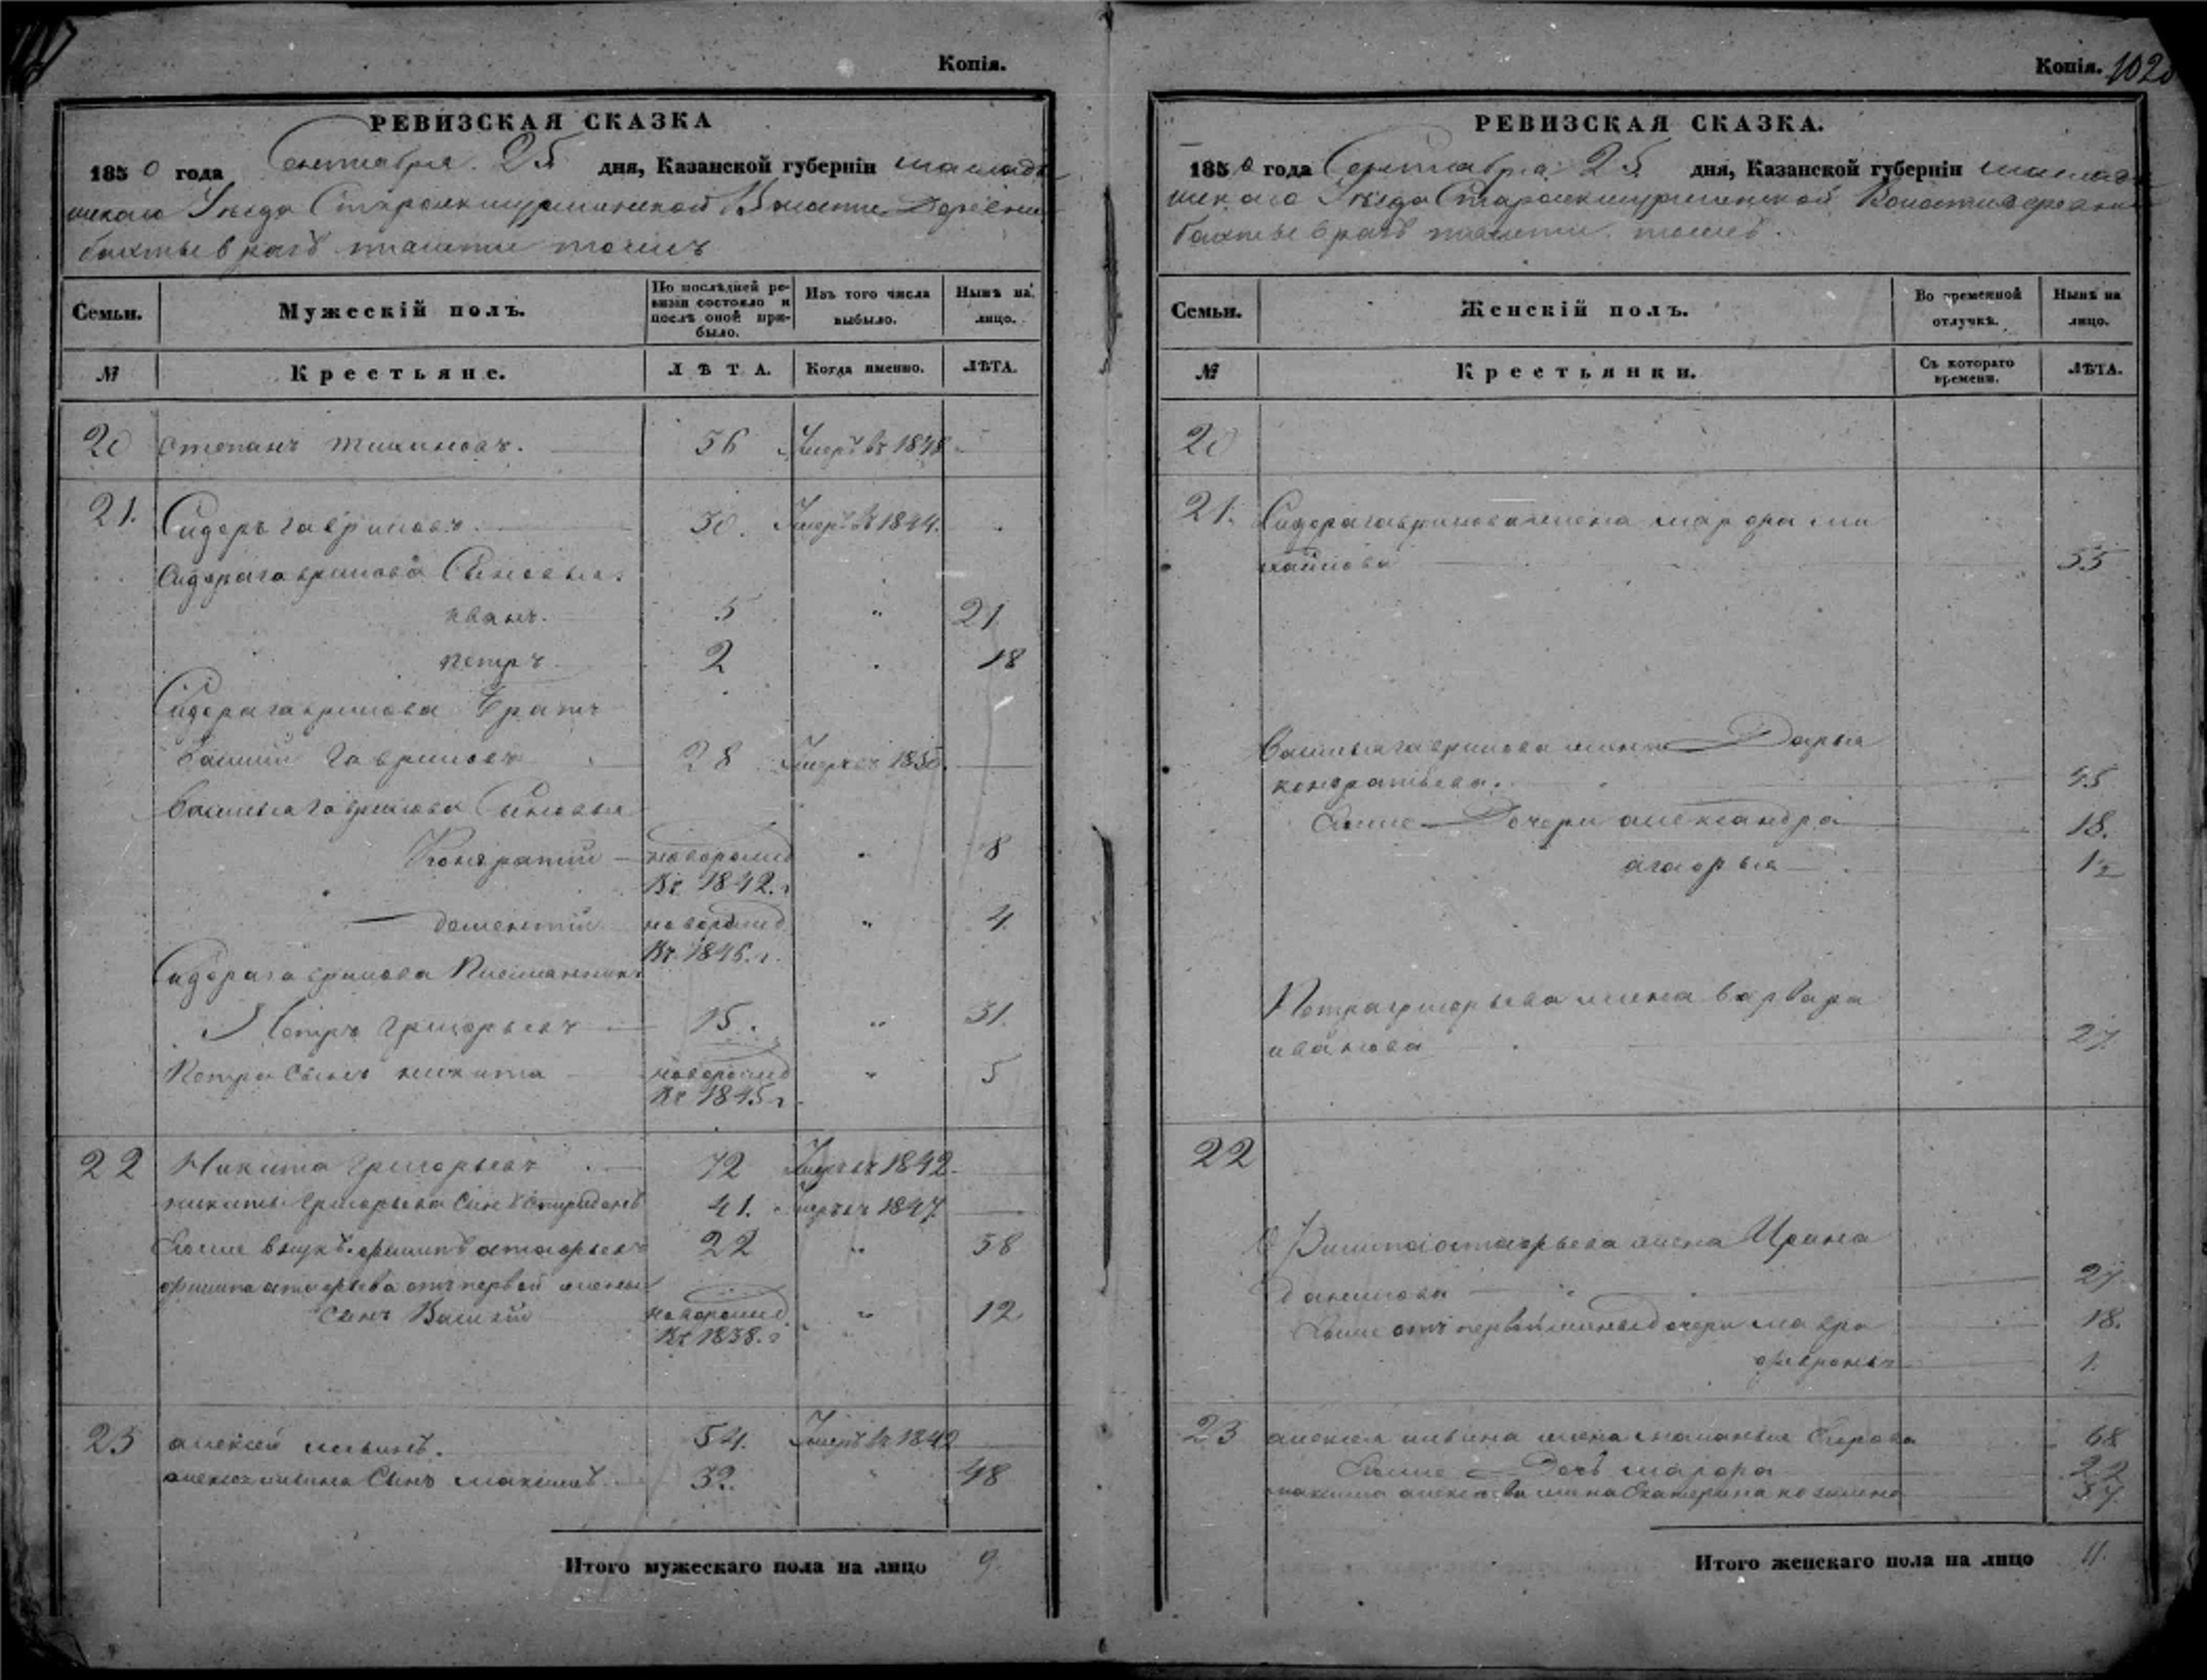 Копія.
РЕВИЗСКАЯ СКАЗКА
1850 года Сентября 25 дня, Казанской губерніи
Уезда Волости Деревни
Семьи. Мужескій полъ. По послѣдней ревизіи состояло и послѣ оной прибыло. Изъ того числа выбыло. Нынѣ на лицо.
№ Крестьяне. ЛѢТА. Когда именно. ЛѢТА.
20 степанъ 56 Умеръ въ 1848
21. Сидоръ гавриловъ. 30. Умеръ въ 1844.
Сидора гаврилова Сыновья.
иванъ. 5 " 21
петръ 2 18
Сидора гаврилова братъ
Василий Гавриловъ 28 Умеръ въ 1850.
Василья Гаврилова Сыновья
Кондратий новорожд " 8
Въ 1842. г
дементий новорожд " 4
Въ 1846. г.
Сидора гаврилова Племянникъ
Петръ григорьевъ 15. " 31.
Петра Сынъ никита новорожд " 5
Въ 1845 г
22 Никита Григорьевъ 72 Умеръ въ 1842.
никиты Григорьева Сынъ 41. Умеръ въ 1847
внукъ филипъ 22 " 38
филипа отъ первой жены
Сынъ Василий новорожд " 12
Въ 1838. г
23 алексей ильинъ. 54. Умеръ въ 1842
алексея ильина Сынъ максимъ. 32. 48
Итого мужескаго пола на лицо 9.
Копія. 102
РЕВИЗСКАЯ СКАЗКА.
1850 года Сентября 25 дня, Казанской губерніи
Уезда Волости деревни
Семьи. Женскій полъ. Во временной отлучкѣ. Нынѣ на лицо.
№ Крестьянки. Съ котораго времени. ЛѢТА.
20
21. Сидора гаврилова жена марфа ми
хайлова 55
Василья гаврилова жена Дарья
кондратьева. 45
Дочери александра 18.
агафья 1½
Петра григорьева жена варвара
иванова 27
22
Филипа жена Ирина
данилова 27
отъ первой жены дочери мавра 18.
1.
23 алексея ильина жена 68
Дочь марфа 22
максима алексеева жена Екатерина козмина 37.
Итого женскаго пола на лицо 11.